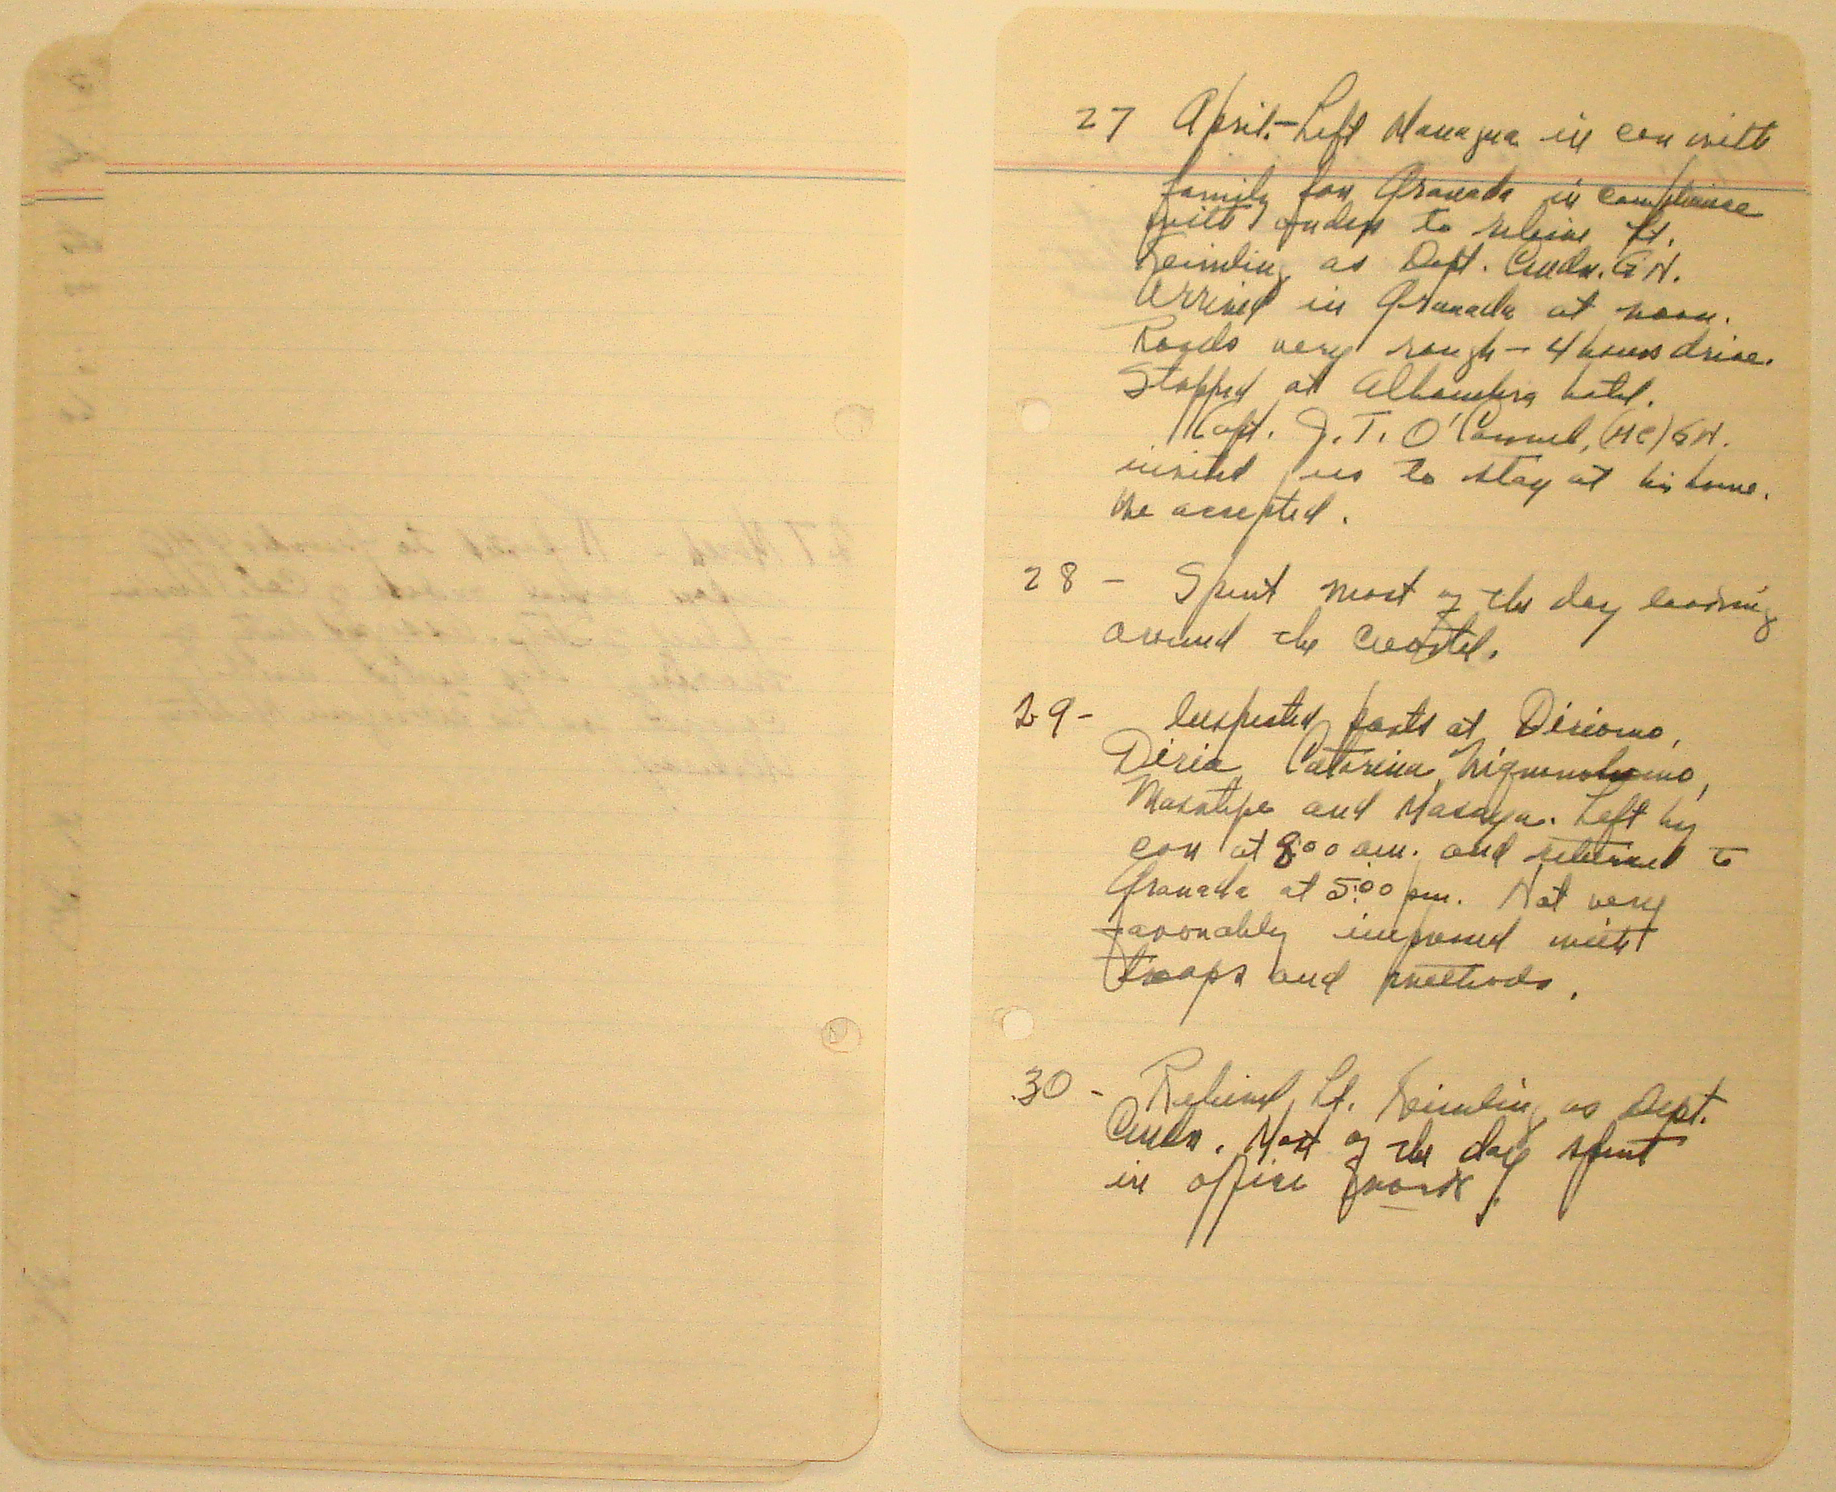 27 April.- Left Managua in car with
family for Granada in compliance
with orders to relieve Lt.
as Dept. Cmdr. G.N.
Arrived in Granada at noon.
Roads very rough - 4 hours drive.
Stopped at Alhambra hotel.
Capt. J. T. O'Connel, (MC) GN.
invited us to stay at his home.
We accepted.
28 - Spent most of the day
around the Cuartel.
29 - Inspected posts at Diriomo,
Diria, Catarina,
Masatepe and Masaya. Left by
car at 8:00 am. and returned to
Granada at 5:00 pm. Not very
favorably impressed with
troops and methods.
30 - Relieved Lt. as Dept.
Cmdr. Most of the day spent
in office work.